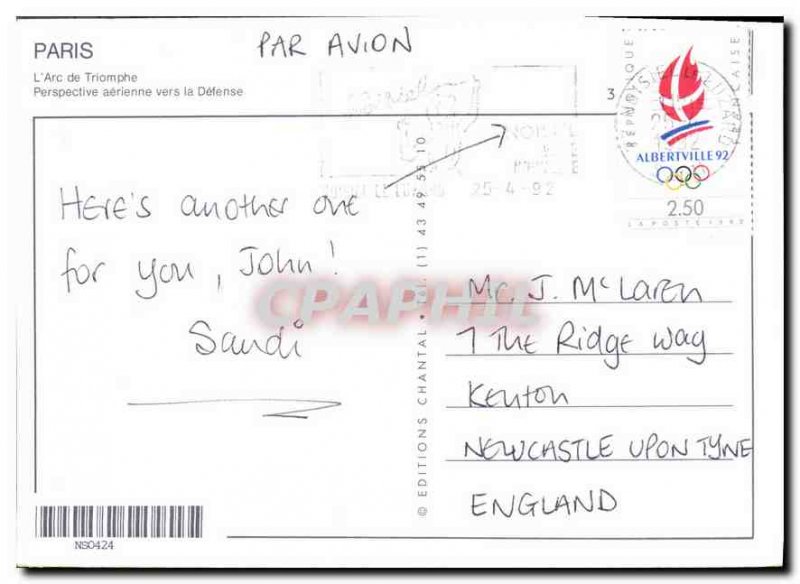 PARIS
L'Arc de Triomphe
Perspective aérienne vers la Défense
PAR AVION
RÉPUBLIQUE FRANÇAISE
ALBERTVILLE 92
2.50
LA POSTE 1990
25-4-92
Here's another one
for you, John!
Sandi
CPAPHIL
© EDITIONS CHANTAL • Tél. (1) 43 49 55 10
Mr. J. McLaren
7 The Ridge Way
Kenton
NEWCASTLE UPON TYNE
ENGLAND
NS0424